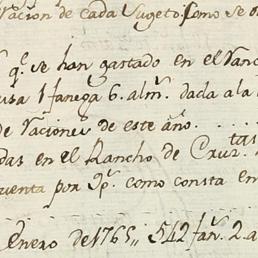 vacion de cada Sugeto. Como se
q.e se han gastado en el
usa 1 fanega 6. alm.s dada a la
de raciones de este año....
das en el Rancho de Cruz.tas
cuenta por Yp.s como consta en
Enero de 1765,, 542 fan.s 2. a